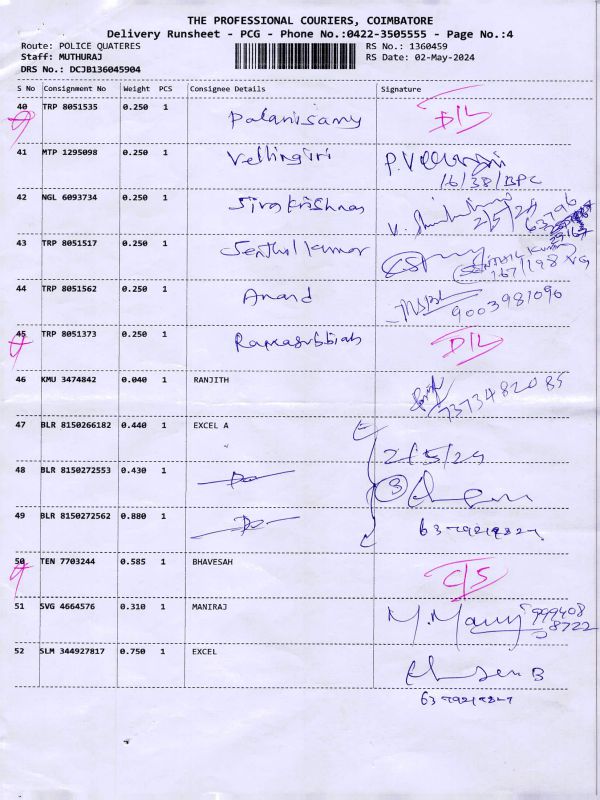 THE PROFESSIONAL COURIERS, COIMBATORE
Delivery Runsheet - PCG - Phone No.:0422-3505555 - Page No.:4
Route: POLICE QUATERES RS No.: 1360459
Staff: MUTHURAJ RS Date: 02-May-2024
DRS No.: DCJB136045904
S No Consignment No Weight PCS Consignee Details Signature
40 TRP 8051535 0.250 1 Palanisamy D/L
41 MTP 1295098 0.250 1 Vellingiri P.V
16/38/BPC
42 NGL 6093734 0.250 1 Siva Krishnan V. 2/5/24 63796
43 TRP 8051517 0.250 1 Senthil Kumar
167/198 VG
44 TRP 8051562 0.250 1 Anand 9003981096
45 TRP 8051373 0.250 1 Ramasubbiah D/L
46 KMU 3474842 0.040 1 RANJITH
7373482085
47 BLR 8150266182 0.440 1 EXCEL A
2/5/24
48 BLR 8150272553 0.430 1 Do 3
49 BLR 8150272562 0.880 1 Do
50 TEN 7703244 0.585 1 BHAVESAH C/S
51 SVG 4664576 0.310 1 MANIRAJ M. 999408
8722
52 SLM 344927817 0.750 1 EXCEL